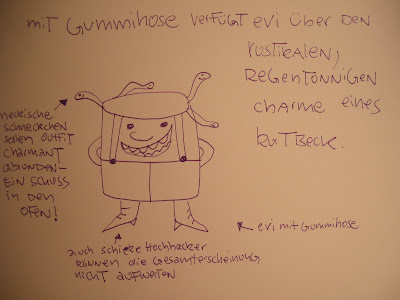 mit Gummihose verfügt evi über den
rustikalen,
regentonnigen
charme eines
kurt beck.
neckische
schneckchen
sollen outfit
charmant
abrunden-
ein schuss
in den
ofen!
← evi mit Gummihose
auch schicke Hochhacker
können die Gesamterscheinung
nicht aufwerten